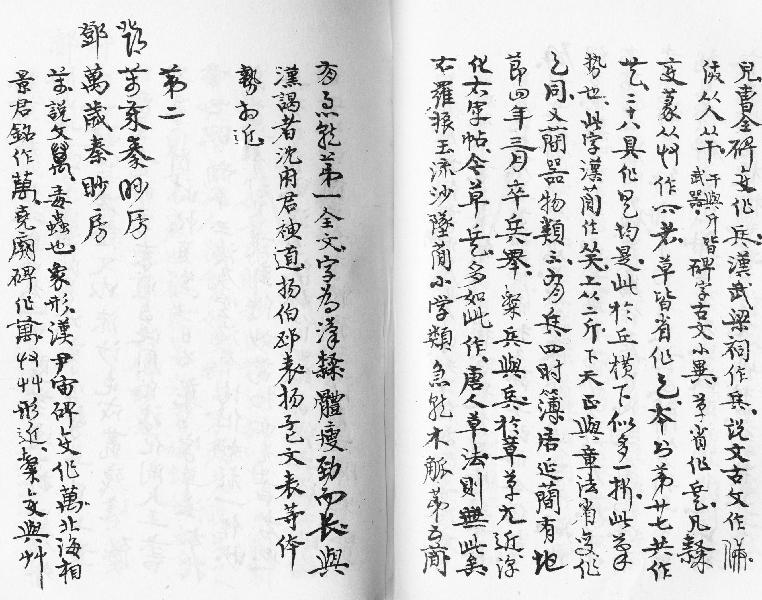 兒書全碑文作兵。漢武梁祠作兵。說文古文作
从人从干 武器。干與斤皆 碑字古文小異。草省作。凡隸
文篆从艸作六者草皆省作。本书第廿七共作
廿、二十八具作均是。此於丘横下似多一折。此筆
勢也。此字漢簡作。上从二斤。下天正與章法省变作
同。又簡器物類二有兵。四时簿居延簡有地
節四年三月卒兵舉。案兵與兵於章草尤近。淳
化不罕帖。令草兵多如此作。唐人草法則無此矣
右羅振玉流沙墜簡小学類急就木觚第五簡
有急就第一全文。字為漢隸。體瘦勁而長。與
漢謁者沈府君神道。揚伯邳表。揚子文表等体
勢相近
第二
鄧萬歲秦眇房
鄧萬歲秦眇房
萬說文萬。毒蟲也。象形。漢尹宙碑文作萬。北海相
景君銘作萬。堯廟碑作萬。艸形近。案文與艸